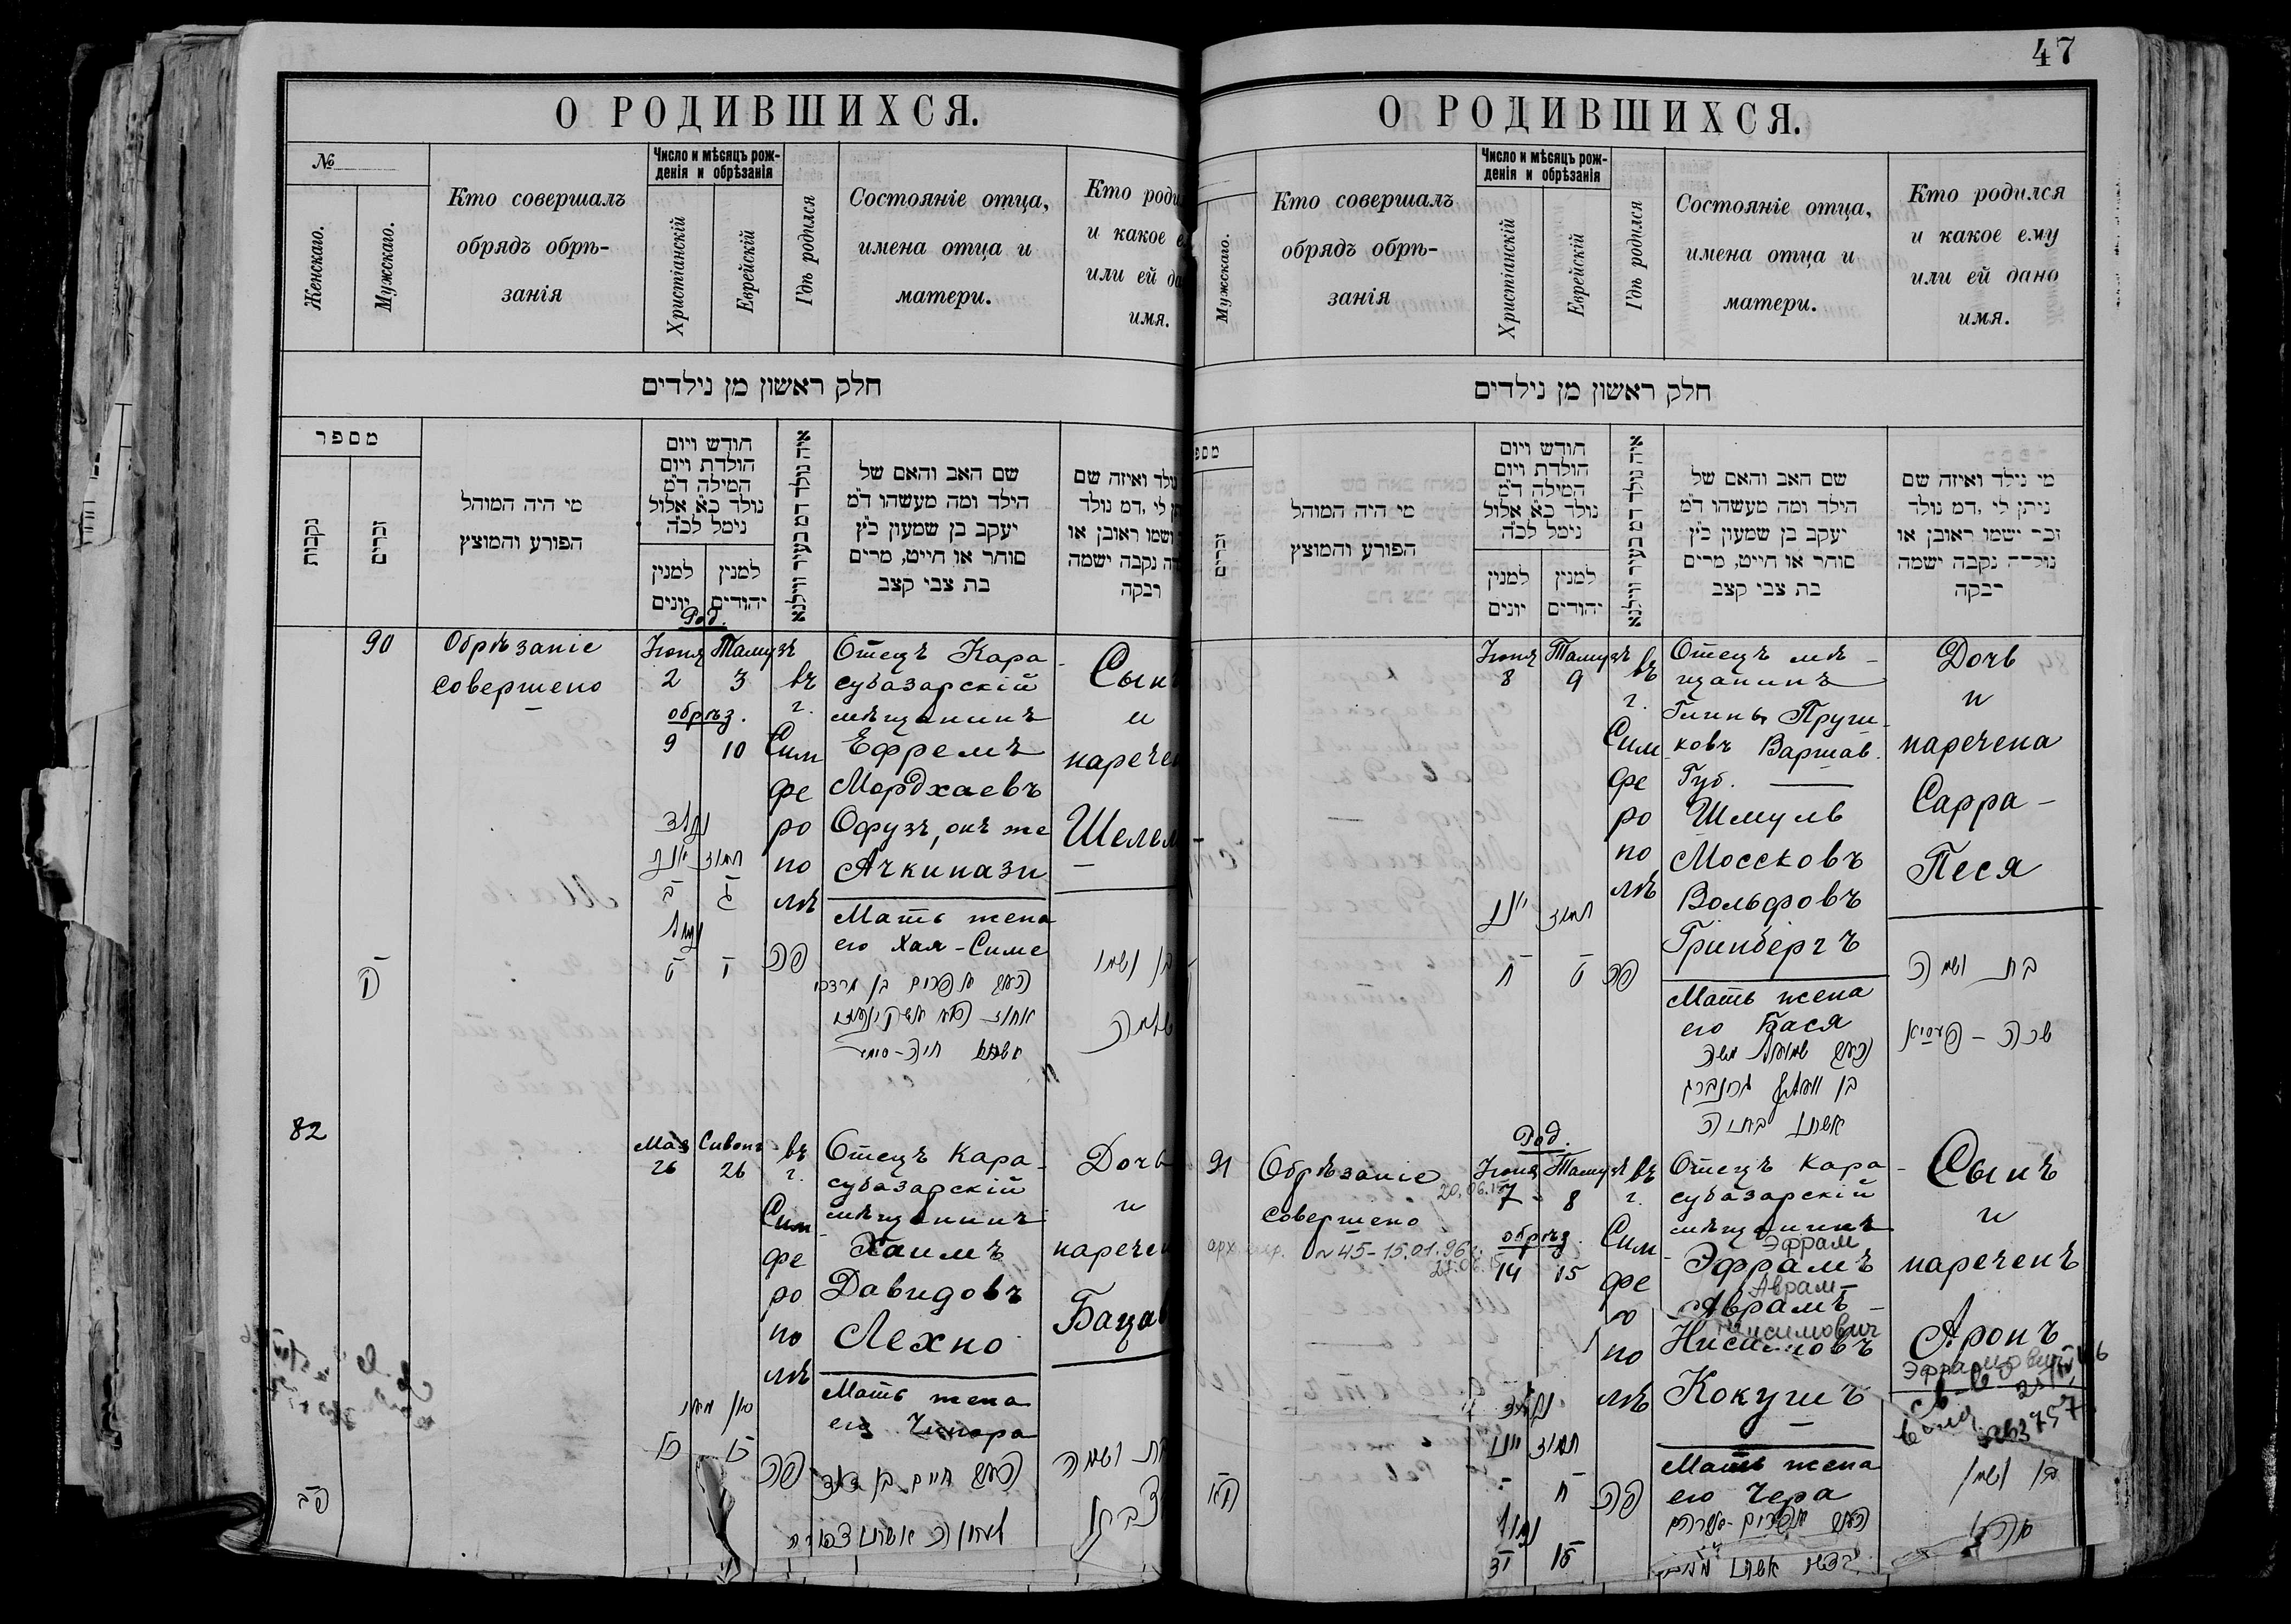 47
О РОДИВШИХСЯ.
№
Женскаго.
Мужскаго.
Кто совершалъ
обрядъ обрѣ-
занія
Число и мѣсяцъ рож-
денія и обрѣзанія
Христіанскій
Еврейскій
Гдѣ родился
Состояніе отца,
имена отца и
матери.
Кто роди
и какое е
или ей да
имя.
חלק ראשון מן נילדים
מספר
נקבות
זכרים
מי היה המוהל
הפורע והמוצץ
חודש ויום
הולדת ויום
המילה ד״מ
נולד כ״א אלול
נימל לכ״ה
למנין
יונים
למנין
יהודים
איה נולד דמ בעיר ווילנא
שם האב והאם של
הילד ומה מעשהו ד״מ
יעקב בן שמעון כ״ץ
סוחר או חייט, מרים
בת צבי קצב
ולד ואיזה שם
תן לי ,דמ נולד
ושמו ראובן או
דה נקבה ישמה
רבקה
90
Обрѣзаніе
совершено
Род.
Іюня Тамузъ
2 3
обрѣз.
9 10
въ
г.
Сим
фе
ро
по
лѣ
Отецъ Кара-
субазарскій
мѣщанинъ
Ефремъ
Мордхаевъ
Офузъ, онъ же
Ачкинази
Мать жена
его Хая-Симе
Сын
и
нарече
Шелем
תמוז
ג
ב
י
ט
פה
צ
בן ושמו
שלמה
82
Мая Сивонъ
26 26
въ
г.
Сим
фе
ро
по
лѣ
Отецъ Кара-
субазарскій
мѣщанинъ
Хаимъ
Давидовъ
Лехно
Мать жена
его Чипора
Дочь
и
наречен
Бацав
כו
כו
פה
פב
חיים בן דוד
לעחנה אשתו צפורה
בת ושמה
О РОДИВШИХСЯ.
Мужскаго.
Кто совершалъ
обрядъ обрѣ-
занія
Число и мѣсяцъ рож-
денія и обрѣзанія
Христіанскій
Еврейскій
Гдѣ родился
Состояніе отца,
имена отца и
матери.
Кто родился
и какое ему
или ей дано
имя.
חלק ראשון מן נילדים
מספ
זכרים
מי היה המוהל
הפורע והמוצץ
חודש ויום
הולדת ויום
המילה ד״מ
נולד כ״א אלול
נימל לכ״ה
למנין
יונים
למנין
יהודים
איה נולד דמ בעיר ווילנא
שם האב והאם של
הילד ומה מעשהו ד״מ
יעקב בן שמעון כ״ץ
סוחר או חייט, מרים
בת צבי קצב
מי נילד ואיזה שם
ניתן לי ,דמ נולד
זכר ישמו ראובן או
נולדה נקבה ישמה
רבקה
Іюня Тамузъ
8 9
въ
г.
Сим
фе
ро
по
лѣ
Отецъ мѣ-
щанинъ
Гмины Пруш-
ковъ Варшав.
Губ.
Шмуль
Моссковъ
Вольфовъ
Гринбергъ
Мать жена
его Бася
Дочь
и
наречена
Сарра-
Песя
תמוז
ט
ח
פה
שמואל משה
בן וואלף גרינברג
אשתו בתיה
בת ושמה
שרה - פעסיא
91
Обрѣзаніе
совершено
Род.
Іюня Тамузъ
7 8
20.06.15
обрѣз.
14 15
№45-15.01.96г.
въ
г.
Сим
фе
ро
по
лѣ
Отецъ Кара-
субазарскій
мѣщанинъ
Эфрам
Эфрамъ
Аврам-
Аврамъ-
Нисимович
Нисимовъ
Кокушъ
Мать жена
его Чера
Сынъ
и
нареченъ
Аронъ
Эфрамович
תמוז
ח
טו
יד
פה
צא
אפרים-אברהם
בן ושמו
אהרן